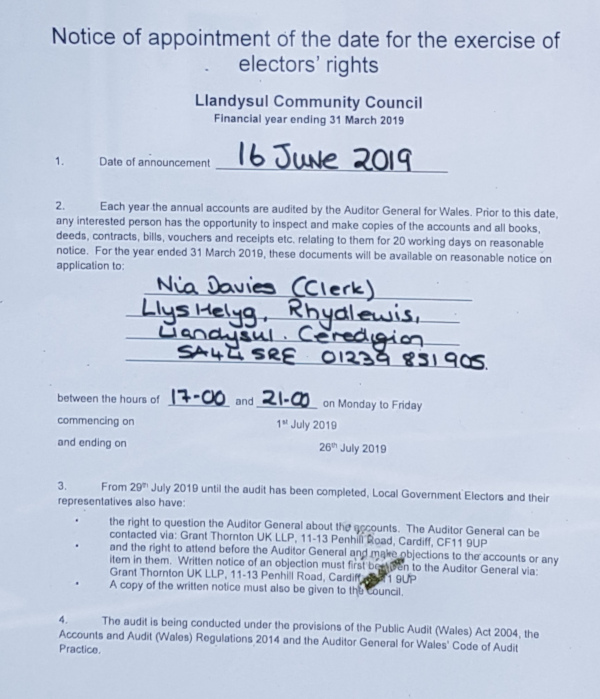 Notice of appointment of the date for the exercise of
electors' rights
Llandysul Community Council
Financial year ending 31 March 2019
1. Date of announcement 16 June 2019
2. Each year the annual accounts are audited by the Auditor General for Wales. Prior to this date,
any interested person has the opportunity to inspect and make copies of the accounts and all books,
deeds, contracts, bills, vouchers and receipts etc. relating to them for 20 working days on reasonable
notice. For the year ended 31 March 2019, these documents will be available on reasonable notice on
application to:
Nia Davies (Clerk)
Llys Helyg, Rhydlewis,
Llandysul. Ceredigion
SA44 5RE 01239 851905.
between the hours of 17-00 and 21-00 on Monday to Friday
commencing on 1st July 2019
and ending on 26th July 2019
3. From 29th July 2019 until the audit has been completed, Local Government Electors and their
representatives also have:
• the right to question the Auditor General about the accounts. The Auditor General can be
contacted via: Grant Thornton UK LLP, 11-13 Penhill Road, Cardiff, CF11 9UP
• and the right to attend before the Auditor General and make objections to the accounts or any
item in them. Written notice of an objection must first be given to the Auditor General via:
Grant Thornton UK LLP, 11-13 Penhill Road, Cardiff, 9UP
• A copy of the written notice must also be given to the Council.
4. The audit is being conducted under the provisions of the Public Audit (Wales) Act 2004, the
Accounts and Audit (Wales) Regulations 2014 and the Auditor General for Wales' Code of Audit
Practice.